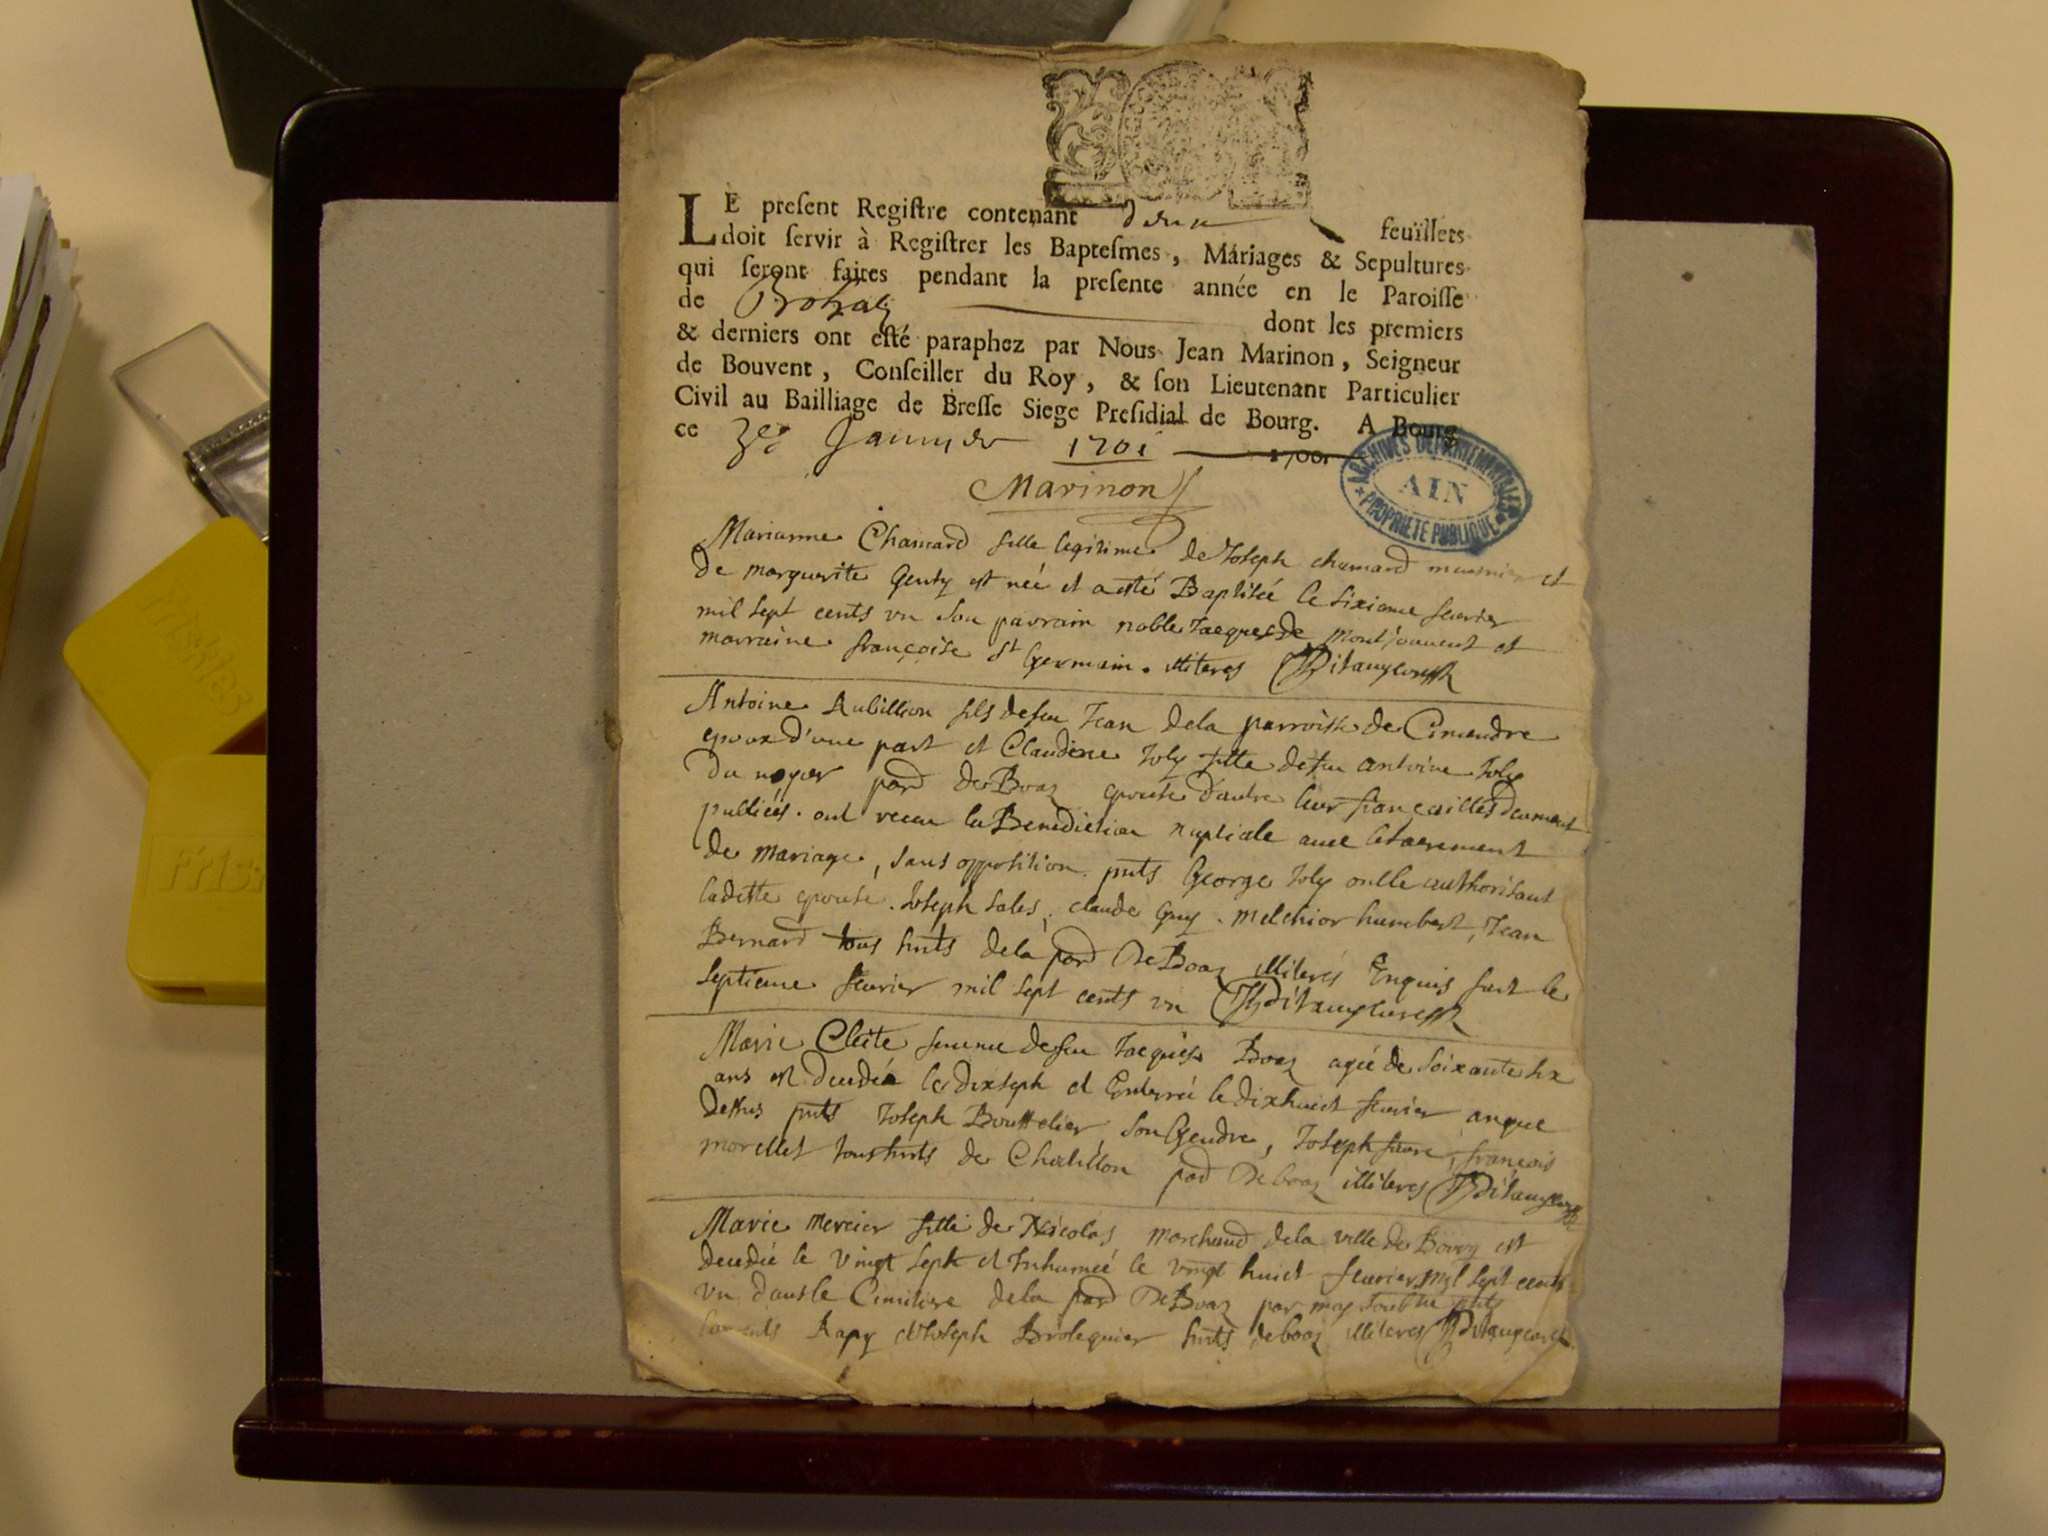 LE present Registre contenant deux feüillets
doit servir à Registrer les Baptesmes, Mariages & Sepultures
qui seront faites pendant la presente année en le Paroisse
de dont les premiers
& derniers ont esté paraphez par Nous Jean Marinon, Seigneur
de Bouvent, Conseiller du Roy, & son Lieutenant Particulier
Civil au Bailliage de Bresse Siege Presidial de Bourg. A Bourg
ce 3e Janvier 1701 1700.
Marinon
ARCHIVES DEPARTEMENTALES
AIN
PROPRIETE PUBLIQUE
Marianne Chamard fille legitime de Joseph chamard meunier et
de marguerite Genty est neé et a esté Baptiseé le sixieme feurier
mil sept cents vn son parrain noble Jacques de montjouuent et
marraine françoise st Germain. illiteres
Antoine Rubillion fils de feu Jean dela parroisse de Cimandre
epoux d'vne part et Claudine Joly fille de feu antoine Joly
du noyer parr de Boaz epouse d'autre leur fiançailles deument
publieés. ont receu la Benediction nuptiale auec le sacrement
de mariage, sans opposition. pnts George Joly oncle authorisant
ladette epouse. Joseph sales, claude Guy. melchior humbert, Jean
Bernard tous hnts dela parr De Boaz illiterés Enquis fait le
septieme feurier mil sept cents vn
Marie Cleite femme de feu Jacques Boaz ageé de soixante six
ans est decedeé le dixsept et Enterreé le dixhuict feurier an que
dessus pnts Joseph Bouttelier son Gendre, Joseph faure, françois
morellet tous hnts de Chatillon parr De boaz illiteres
Marie mercier fille de Nicolas marchand dela ville de Bourg est
decedeé le vingt sept et Inhumeé le vingt huict feurier mil sept cents
vn dans le Cimitiere dela parr De Boaz par moy soubsne pnts
Rapy et Joseph Brolequier hnts de boaz illiteres
Friskies
Frisk